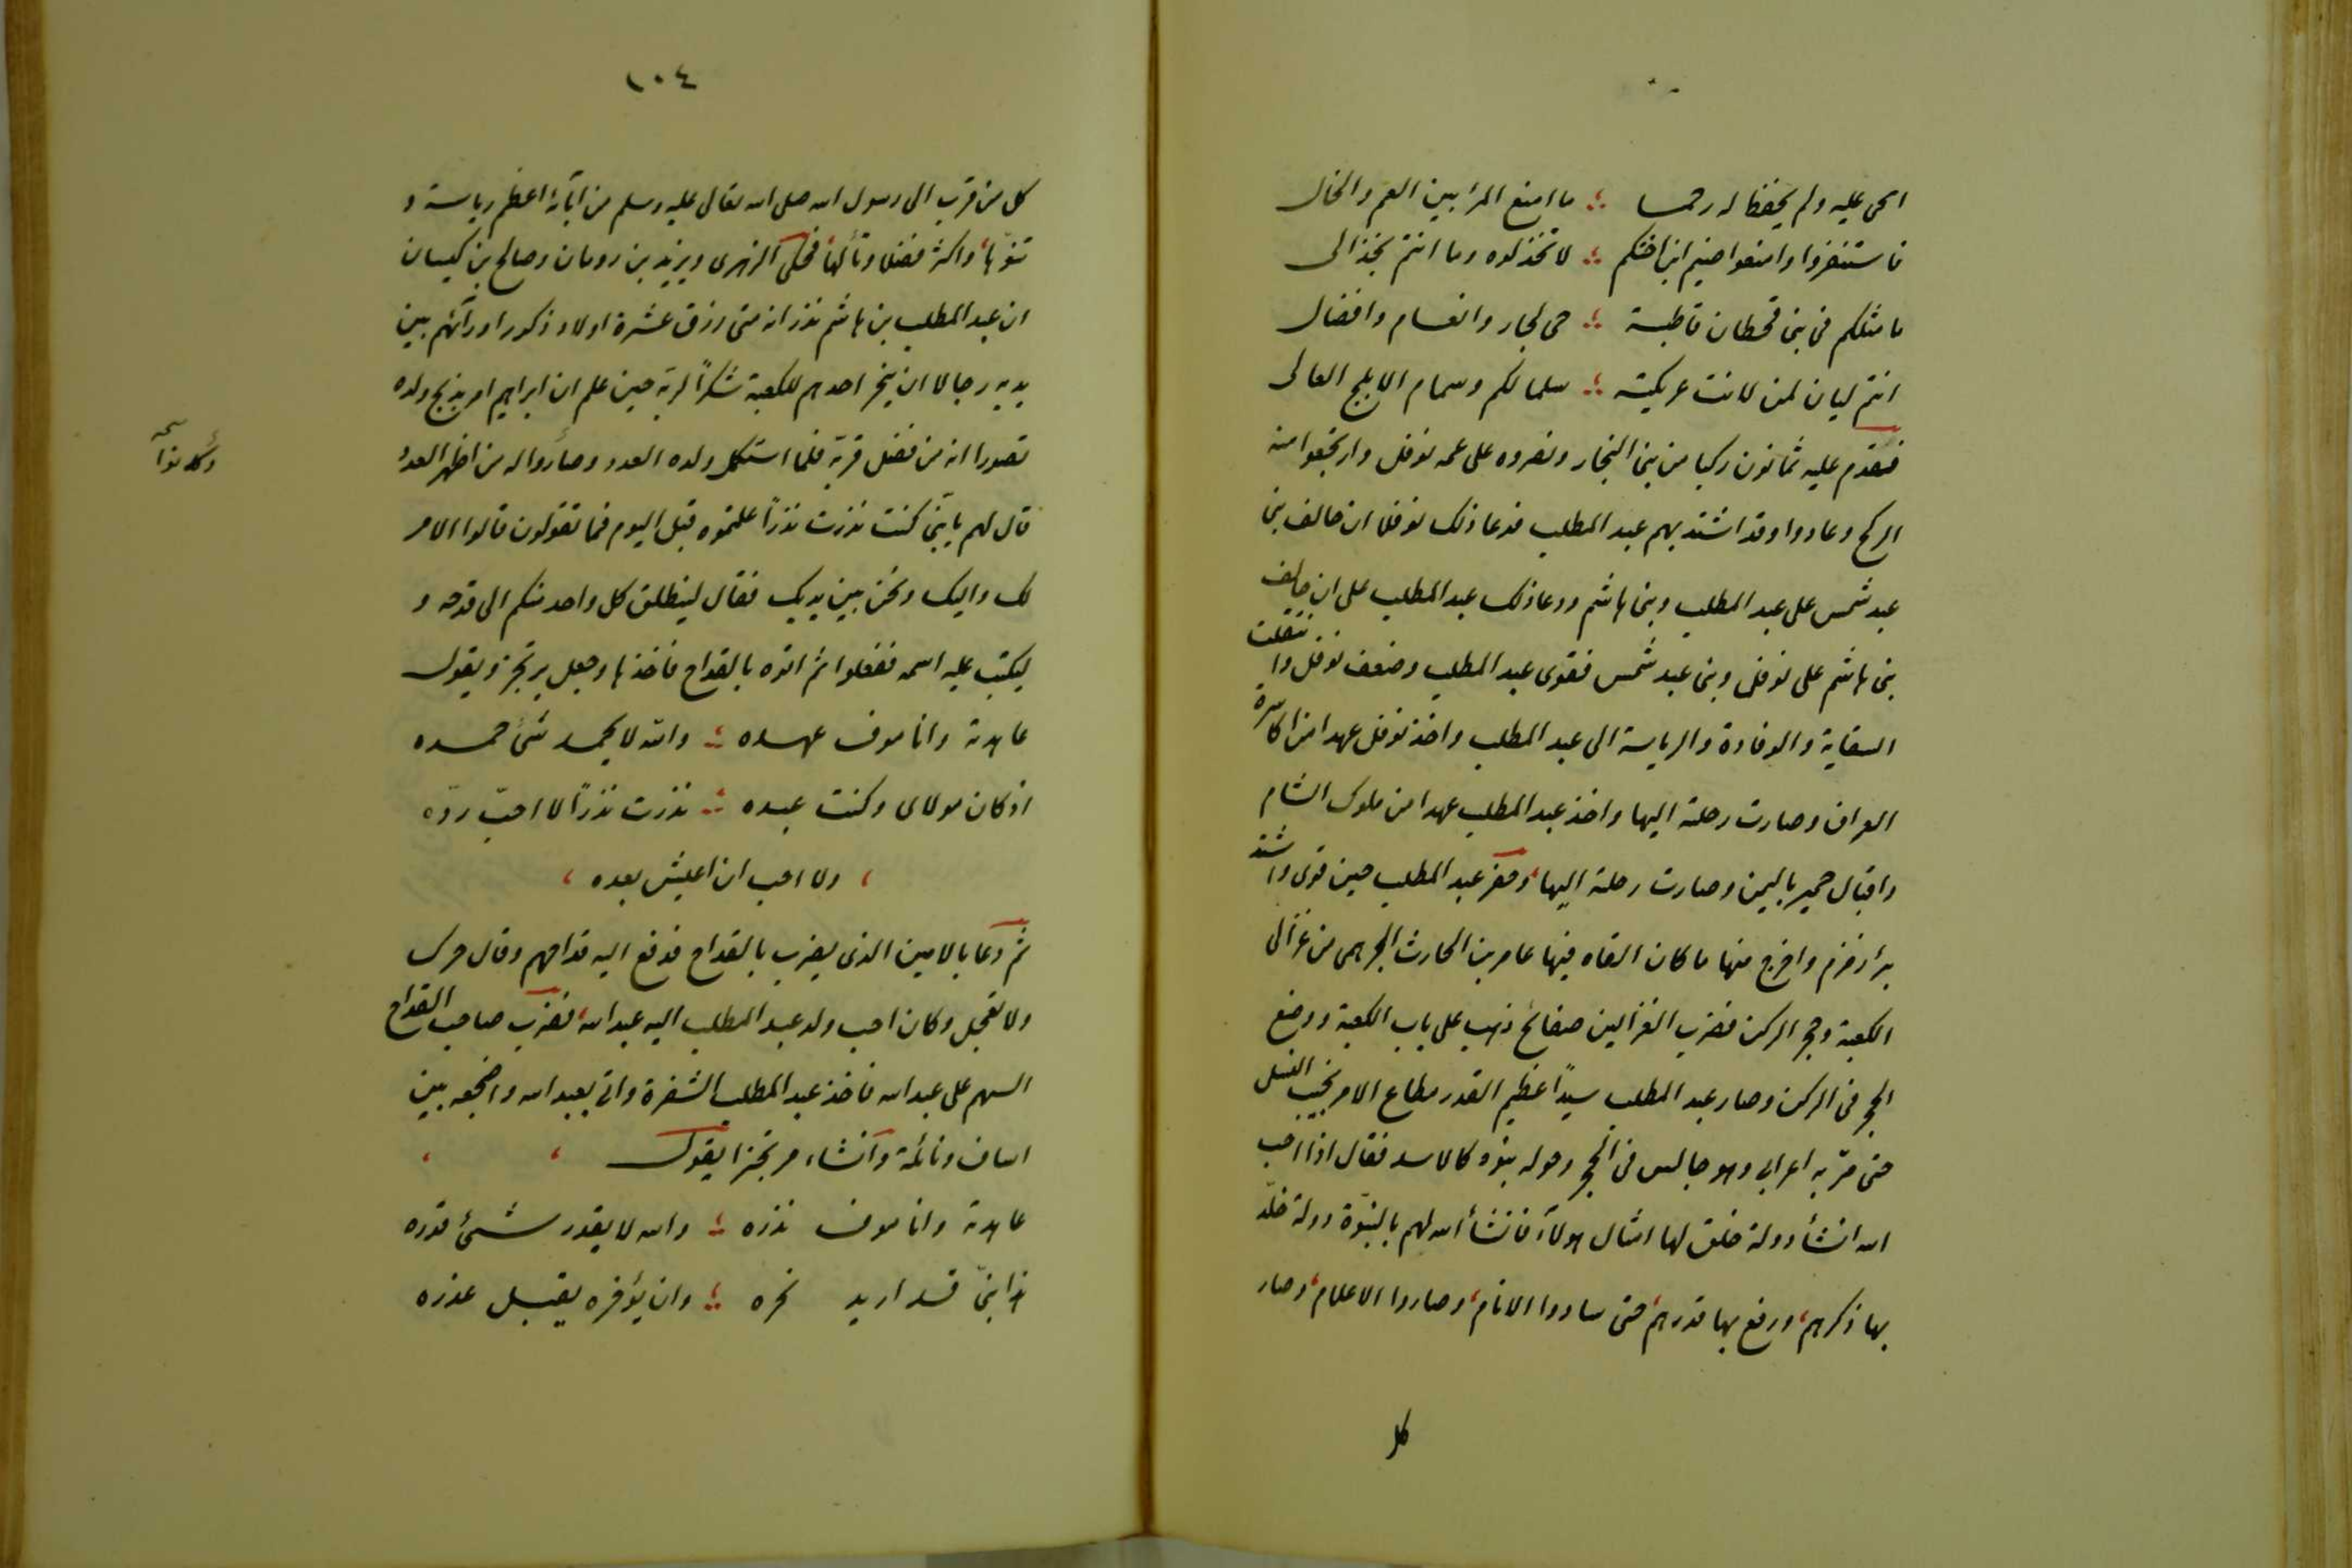 انحى عليه ولم يحفظ له رحما ؛ ما امنع المرٔ بين العم والخال
فاستنفروا وامنعوا ضيم ابن اختكم ؛ لا تخذلوه وما انتم بخذالى
ما مثلكم فى بنى قحطان قاطبة ؛ حى لجار وانعام وافضال
انتم ليان لمن لانت عريكته ؛ سلما لكم وسمام الابلج العالى
فقدم عليه ثمانون ركبا من بنى النجار ونصروه على عمه نوفل وارتجعوا منه
الركح وعادوا وقد اشتد بهم عبد المطلب فدعا ذلك نوفلا ان حالف بنى
عبد شمس على عبد المطلب وبنى هاشم ودعا ذلك عبد المطلب على ان حالف
بنى هاشم على نوفل وبنى عبد شمس فقوى عبد المطلب وضعف نوفل وانتقلت
السقاية والوفادة والرياسة الى عبد المطلب واخذ نوفل عهدا من اكاسرة
العراق وصارت رحلته اليها واخذ عبد المطلب عهدا من ملوك الشام
واقيال حمير باليمن وصارت رحلته اليها، وحفر عبد المطلب حين قوى واشتد
بئر زمزم واخرج منها ما كان القاه فيها عامر بن الحارث الجرهمى من غزالى
الكعبة وحجر الركن فضرب الغزالين صفائح ذهب على باب الكعبة ووضع
الحجر فى الركن وصار عبد المطلب سيدًا عظيم القدر مطاع الامر نجيب النسل
حتى مرّ به اعرابى وهو جالس فى الحجر وحوله بنوه كالاسد فقال اذا احب
الله انشأ دولة خلق لها امثال هولآء فانشأ الله لهم بالنبوّة دولة خلّد
بها ذكرهم، ورفع بها قدرهم، حتى سادوا الانام، وصاروا الاعلام، وصار
كل
١٠٤
كل من قرب الى رسول الله صلى الله تعالى عليه وسلم من آبائه اعظم رياسة و
تنوّها، واكثر فضلا وتألها، فحكى الزهرى ويزيد بن رومان وصالح بن كيسان
ان عبد المطلب بن هاشم نذر انه متى رزق عشرة اولاد ذكورا ورآئهم بين
يديه رجالا ان ينحر احدهم للكعبة شكرًا لربّه حين علم ان ابراهيم امر بذبح ولده
تصورا انه من فضل قربة فلما استكمل ولده العدد وصاروا له من اظهر العدد
قال لهم يا بنىّ كنت نذرت نذرًا علمتموه قبل اليوم فما تقولون قالوا الامر
لك واليك ونحن بين يديك فقال لينطلق كل واحد منكم الى قدحه و
ليكتب عليه اسمه ففعلوا ثم اتوه بالقداح فاخذها وجعل يرتجز ويقول
عاهدته وانا موف عهده ؛ والله لا يحمد شئ حمده
اذ كان مولاى وكنت عبده ؛ نذرت نذرًا لا احبّ ردّه
، ولا احب ان اعيش بعده ،
ثم دعا بالامين الذى يضرب بالقداح فدفع اليه قداحهم وقال حرك
ولا تعجل وكان احب ولد عبد المطلب اليه عبد الله، فضرب صاحب القداح
السهم على عبد الله فاخذ عبد المطلب الشفرة واتى بعبد الله واضجعه بين
اساف ونائلة وانشاء مرتجزا يقول ، ،
عاهدته وانا موف نذره ؛ والله لا يقدر شئ قدره
هذا بنىّ قد اريد نحره ؛ وان يؤخره يقبل عذره